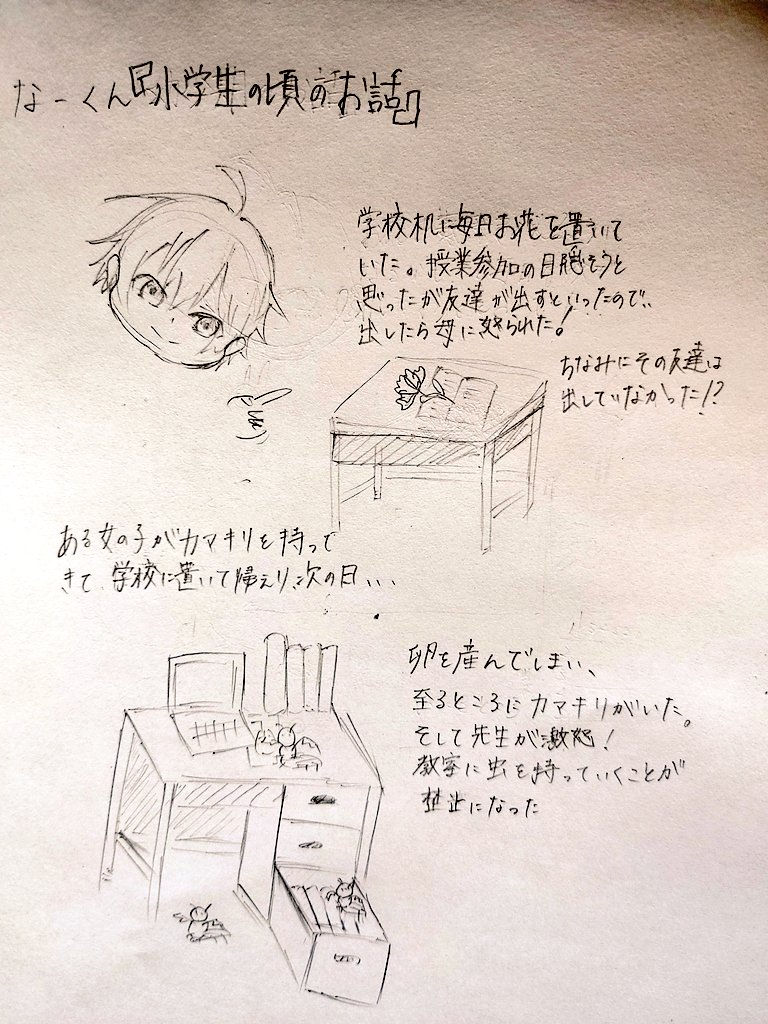 なーくん『小学生の頃のお話』
学校机に毎日お花を置いて
いた。授業参加の日隠そうと
思ったが友達が出すといったので、
出したら母に怒られた!
ちなみにその友達は
出していなかった!?
ある女の子がカマキリを持って
きて、学校に置いて帰えり、次の日、、、
卵を産んでしまい、
至るところにカマキリがいた。
そして先生が激怒!
教室に虫を持っていくことが
禁止になった